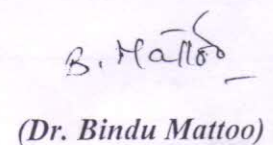 B. Mattoo
(Dr. Bindu Mattoo)